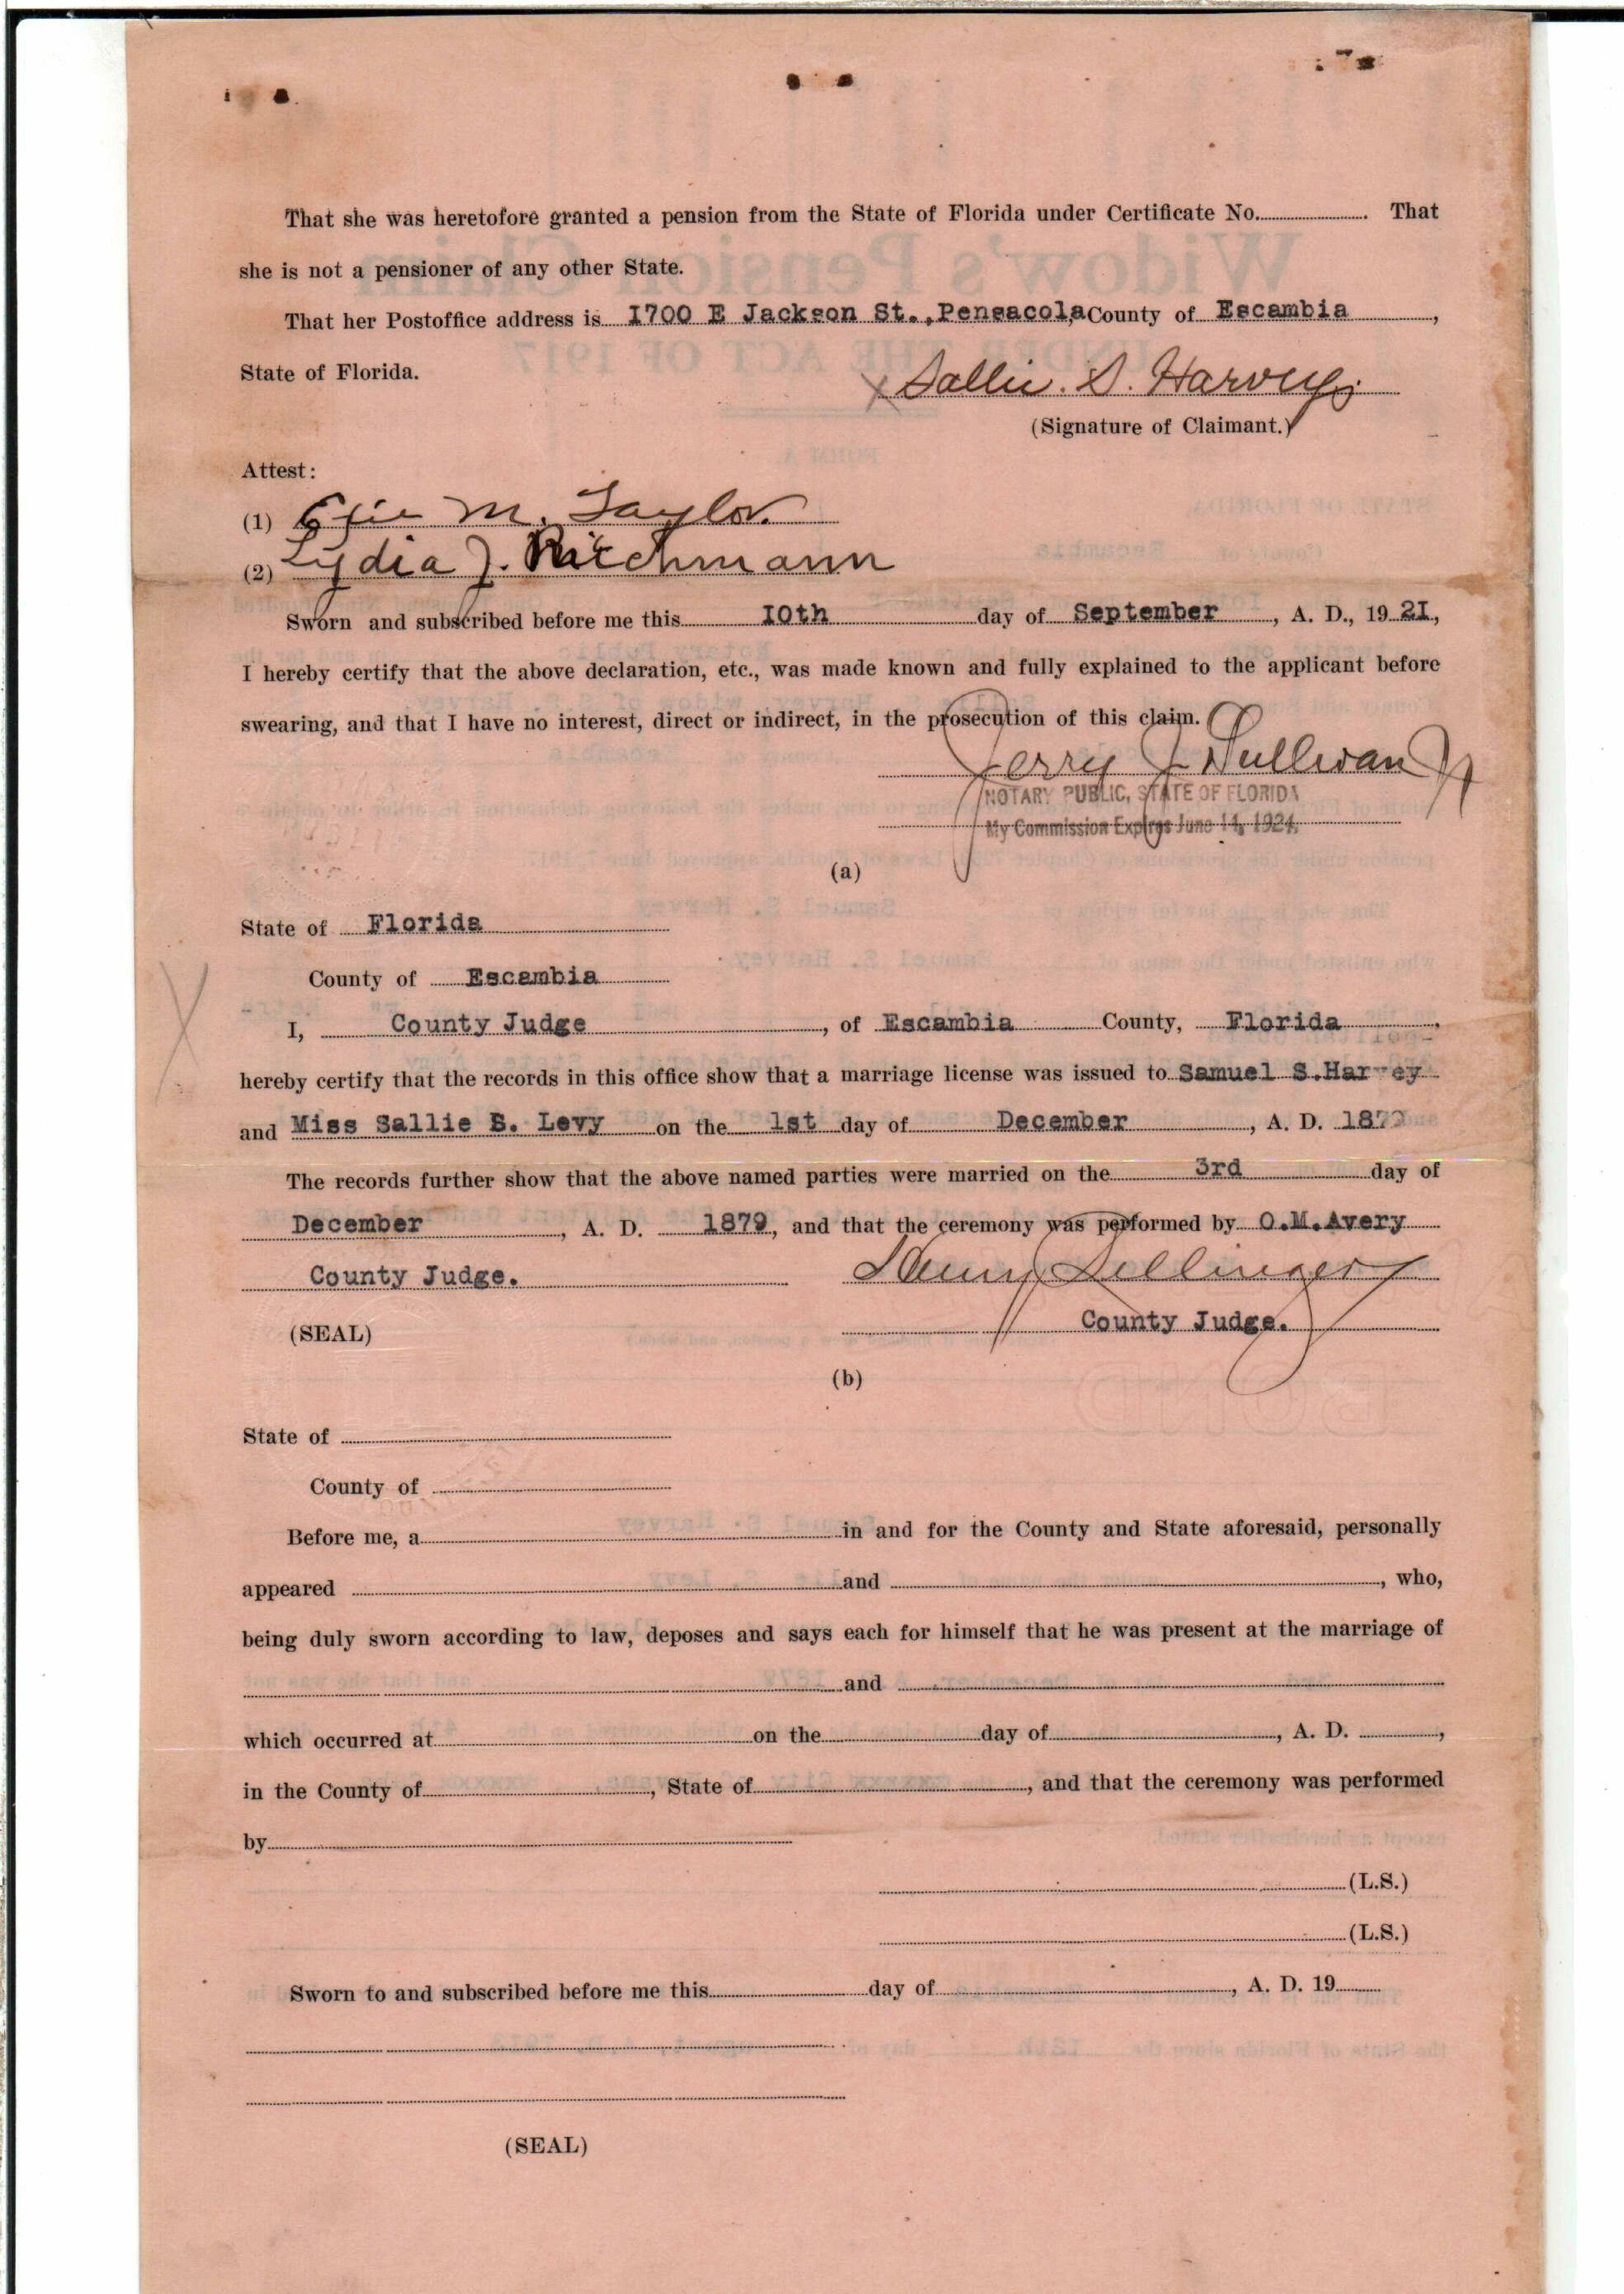 That she was heretofore granted a pension from the State of Florida under Certificate No. . That
she is not a pensioner of any other State.
That her Postoffice address is 1700 E Jackson St., Pensacola, County of Escambia ,
State of Florida.
X Sallie. S. Harvey
(Signature of Claimant.)
Attest:
(1) Effie M. Taylor.
(2) Lydia J. Richmann
Sworn and subscribed before me this 10th day of September , A. D., 19 21.,
I hereby certify that the above declaration, etc., was made known and fully explained to the applicant before
swearing, and that I have no interest, direct or indirect, in the prosecution of this claim.
Jerry J Sullivan Jr
NOTARY PUBLIC, STATE OF FLORIDA
My Commission Expires June 14, 1924.
(a)
State of Florida
County of Escambia
I, County Judge , of Escambia County, Florida ,
hereby certify that the records in this office show that a marriage license was issued to Samuel S. Harvey
and Miss Sallie S. Levy on the 1st day of December , A. D. 1879
The records further show that the above named parties were married on the 3rd day of
December , A. D. 1879, and that the ceremony was performed by O.M.Avery
County Judge.
Henry Bellinger
(SEAL) County Judge.
(b)
State of
County of
Before me, a in and for the County and State aforesaid, personally
appeared and , who,
being duly sworn according to law, deposes and says each for himself that he was present at the marriage of
and
which occurred at on the day of , A. D. ,
in the County of , State of , and that the ceremony was performed
by
(L.S.)
(L.S.)
Sworn to and subscribed before me this day of , A. D. 19
(SEAL)